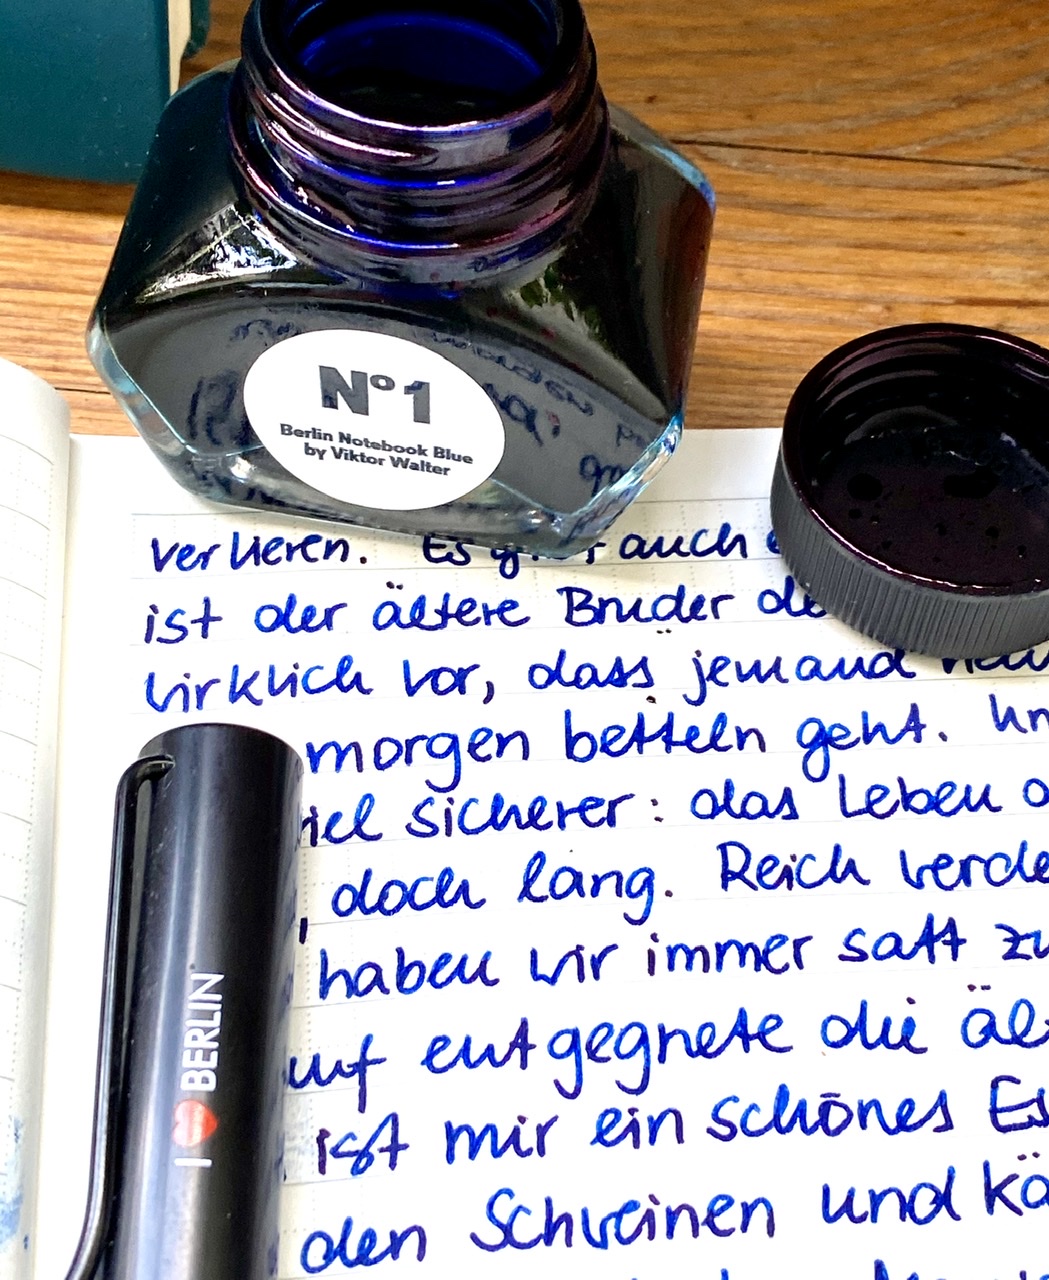 N°1
Berlin Notebook Blue
by Viktor Walter
verlieren. Es auch
ist der ältere Bruder
wirklich vor, dass jemand
morgen betteln geht.
sicherer: das Leben
, doch lang. Reich
haben wir immer satt
entgegnete die
ist mir ein schönes
den Schreinen und
I ♥ BERLIN